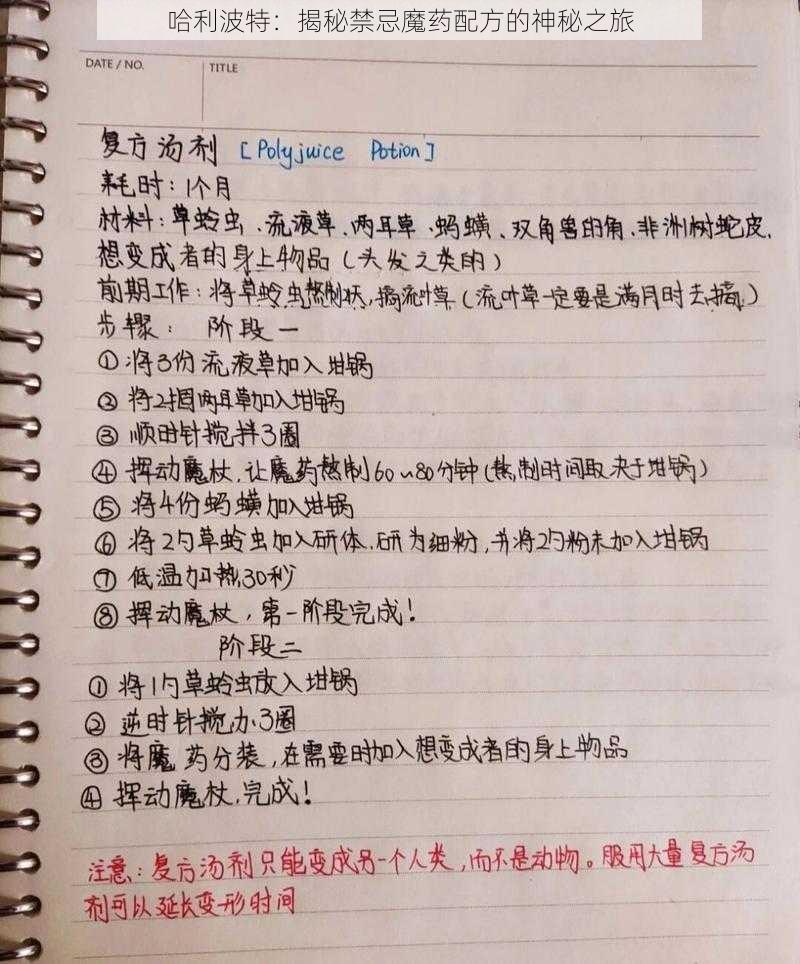 哈利波特：揭秘禁忌魔药配方的神秘之旅
DATE / NO.
TITLE
复方汤剂 [Polyjuice Potion]
耗时：1个月
材料：草蛉虫、流液草、两耳草、蚂蟥、双角兽的角、非洲树蛇皮、
想变成者的身上物品（头发之类的）
前期工作：将草蛉虫熬制好，摘流叶草（流叶草一定要是满月时去摘）
步骤： 阶段一
① 将3份流液草加入坩锅
② 将2捆两耳草加入坩锅
③ 顺时针搅拌3圈
④ 挥动魔杖，让魔药熬制60~80分钟（熬制时间取决于坩锅）
⑤ 将4份蚂蟥加入坩锅
⑥ 将2勺草蛉虫加入研体，研为细粉，并将2勺粉末加入坩锅
⑦ 低温加热30秒
⑧ 挥动魔杖，第一阶段完成！
阶段二
① 将1勺草蛉虫放入坩锅
② 逆时针搅办3圈
③ 将魔药分装，在需要时加入想变成者的身上物品
④ 挥动魔杖，完成！
注意：复方汤剂只能变成另一个人类，而不是动物。服用大量复方汤
剂可以延长变形时间